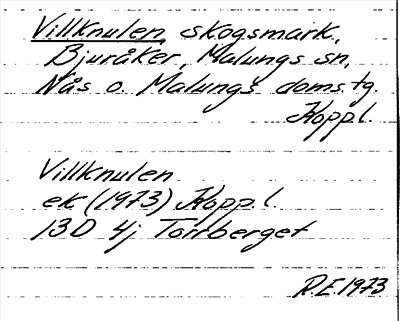 Villknulen, skogsmark,
Bjuråker, Malungs sn,
Nås o. Malungs doms.tg.
Kopp.l.
Villknulen
ek (1973) Kopp.l.
13D 4j Torrberget
R.E. 1973